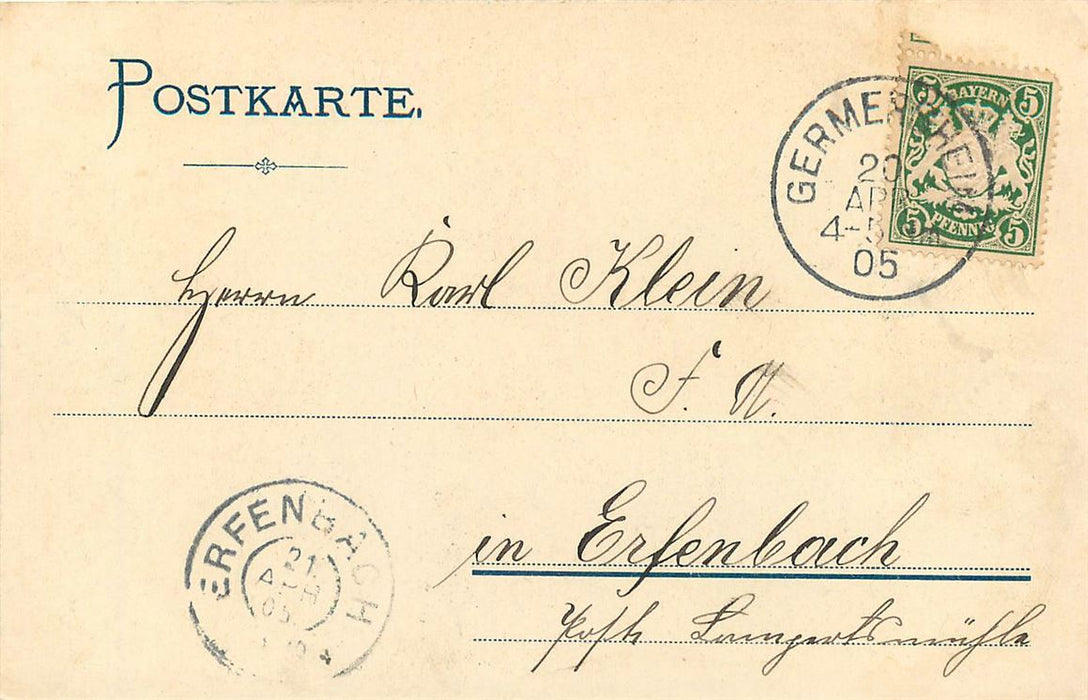 POSTKARTE.
5 BAYERN 5
5 PFENNIG 5
GERMERSHEIM
20
APR
4-5
05
Herrn Karl Klein
F. N.
in Erfenbach
Post Lampertsmühle
ERFENBACH
21
APR
05